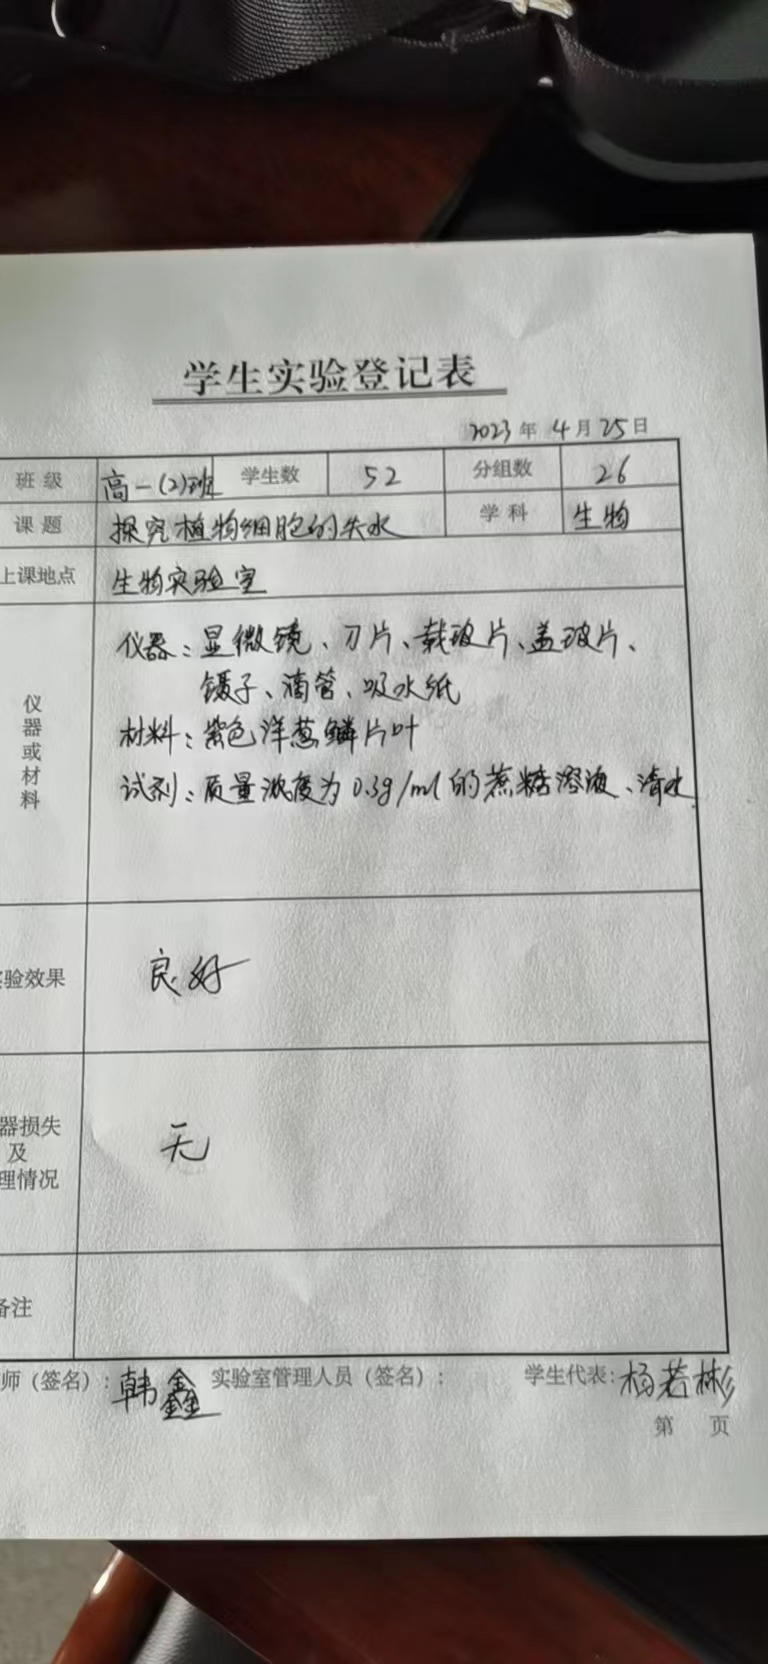 学生实验登记表
2023年 4月25日
班级 高一(2)班 学生数 52 分组数 26
课题 探究植物细胞的失水 学科 生物
上课地点 生物实验室
仪器或材料
仪器：显微镜、刀片、载玻片、盖玻片、
镊子、滴管、吸水纸
材料：紫色洋葱鳞片叶
试剂：质量浓度为0.3g/ml的蔗糖溶液、清水
验效果 良好
器损失
及
理情况
无
备注
师（签名）：韩鑫 实验室管理人员（签名）： 学生代表：杨若彬
第 页